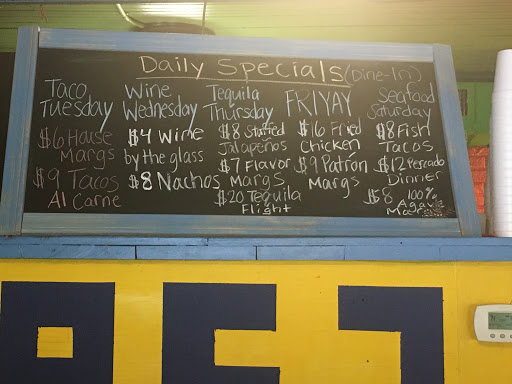 Daily Specials (Dine-In)
Taco
Tuesday
$6 House
Margs
$9 Tacos
Al Carne
Wine
Wednesday
$4 Wine
by the glass
$8 Nachos
Tequila
Thursday
$8 Stuffed
Jalapeños
$7 Flavor
Margs
$20 Tequila
Flight
FRIYAY
$16 Fried
Chicken
$9 Patron
Margs
Seafood
Saturday
$8 Fish
Tacos
$12 Pescado
Dinner
$8 100%
Agave